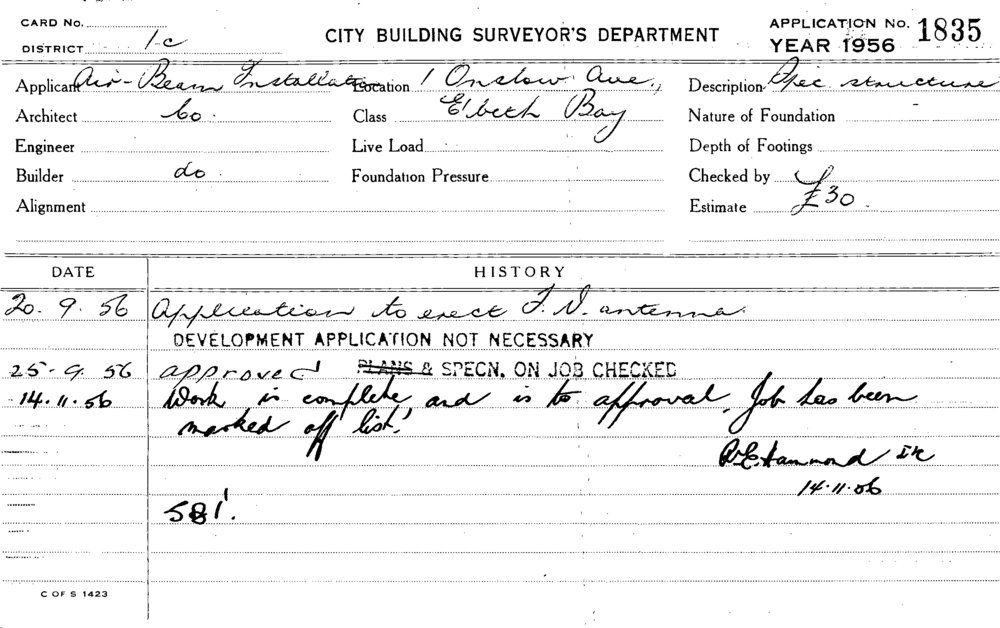 CARD No.
DISTRICT 1-c
CITY BUILDING SURVEYOR'S DEPARTMENT
APPLICATION No. 1835
YEAR 1956
Applicant Air-Beam Installation Location 1 Onslow Ave., Description Spec. structure
Architect Co. Class E'beth Bay Nature of Foundation
Engineer Live Load Depth of Footings
Builder do Foundation Pressure Checked by
Alignment Estimate £30.
DATE HISTORY
20. 9. 56 Application to erect T.V. antenna.
DEVELOPMENT APPLICATION NOT NECESSARY
25-9. 56 approved PLANS & SPECN. ON JOB CHECKED
14.11.56 Work is complete and is to approval. Job has been
marked off list.
Hammond
14.11.56
C OF S 1423